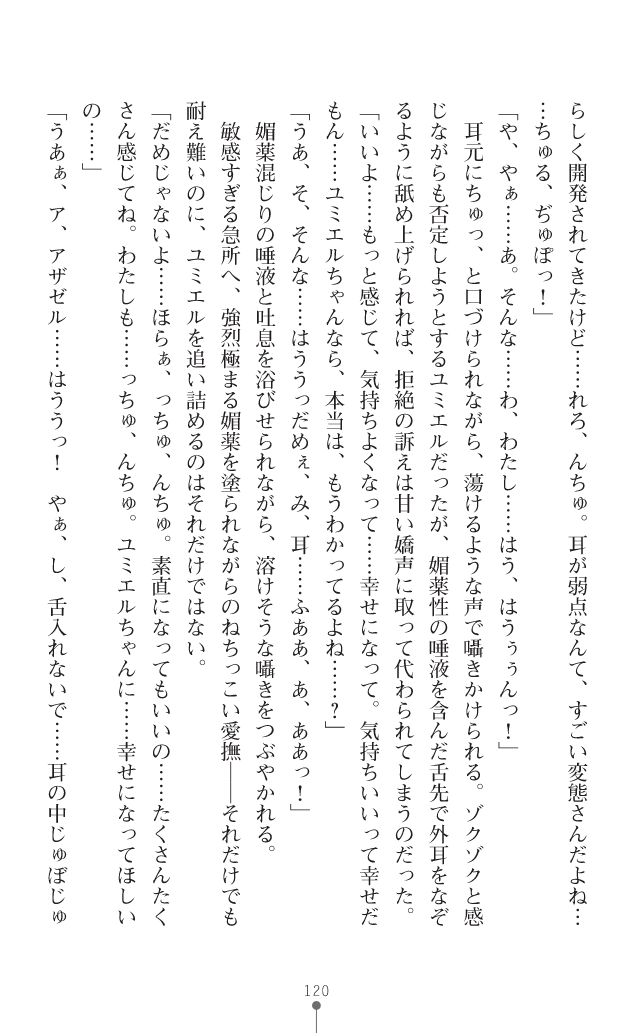 らしく開発されてきたけど……れろ、んちゅ。耳が弱点なんて、すごい変態さんだよね…
…ちゅる、ぢゅぽっ！」
「や、やぁ……あ。そんな……わ、わたし……はう、はうぅぅんっ！」
　耳元にちゅっ、と口づけられながら、蕩けるような声で囁きかけられる。ゾクゾクと感
じながらも否定しようとするユミエルだったが、媚薬性の唾液を含んだ舌先で外耳をなぞ
るように舐め上げられれば、拒絶の訴えは甘い嬌声に取って代わられてしまうのだった。
「いいよ……もっと感じて、気持ちよくなって……幸せになって。気持ちいいって幸せだ
もん……ユミエルちゃんなら、本当は、もうわかってるよね……？」
「うあ、そ、そんな……はううっだめぇ、み、耳……ふああ、あ、ああっ！」
　媚薬混じりの唾液と吐息を浴びせられながら、溶けそうな囁きをつぶやかれる。
　敏感すぎる急所へ、強烈極まる媚薬を塗られながらのねちっこい愛撫――それだけでも
耐え難いのに、ユミエルを追い詰めるのはそれだけではない。
「だめじゃないよ……ほらぁ、っちゅ、んちゅ。素直になってもいいの……たくさんたく
さん感じてね。わたしも……っちゅ、んちゅ。ユミエルちゃんに……幸せになってほしい
の……」
「うあぁ、ア、アザゼル……はううっ！　やぁ、し、舌入れないで……耳の中じゅぽじゅ
120